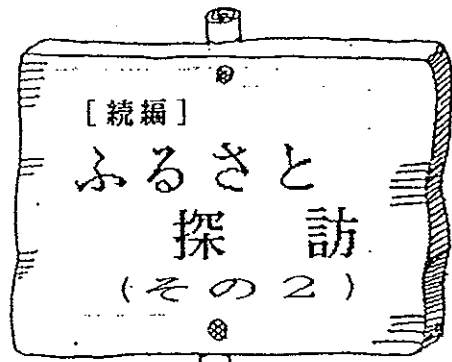 [続編]
ふるさと
探訪
(その2)